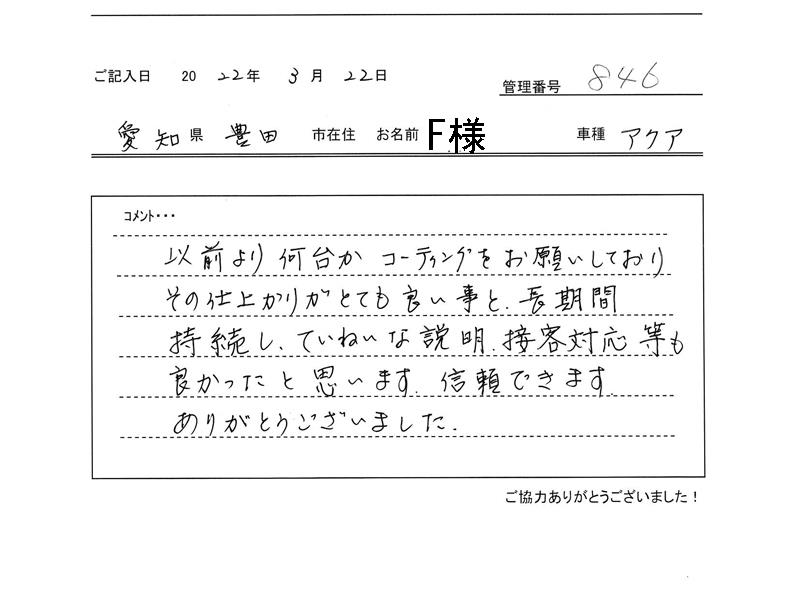 ご記入日 2022年 3月 22日
管理番号 846
愛知県 豊田 市在住 お名前 F様 車種 アクア
コメント・・・
以前より何台か コーティングをお願いしており
その仕上がりがとても良い事と、長期間
持続し、ていねいな説明、接客対応等も
良かったと思います。信頼できます。
ありがとうございました.
ご協力ありがとうございました！